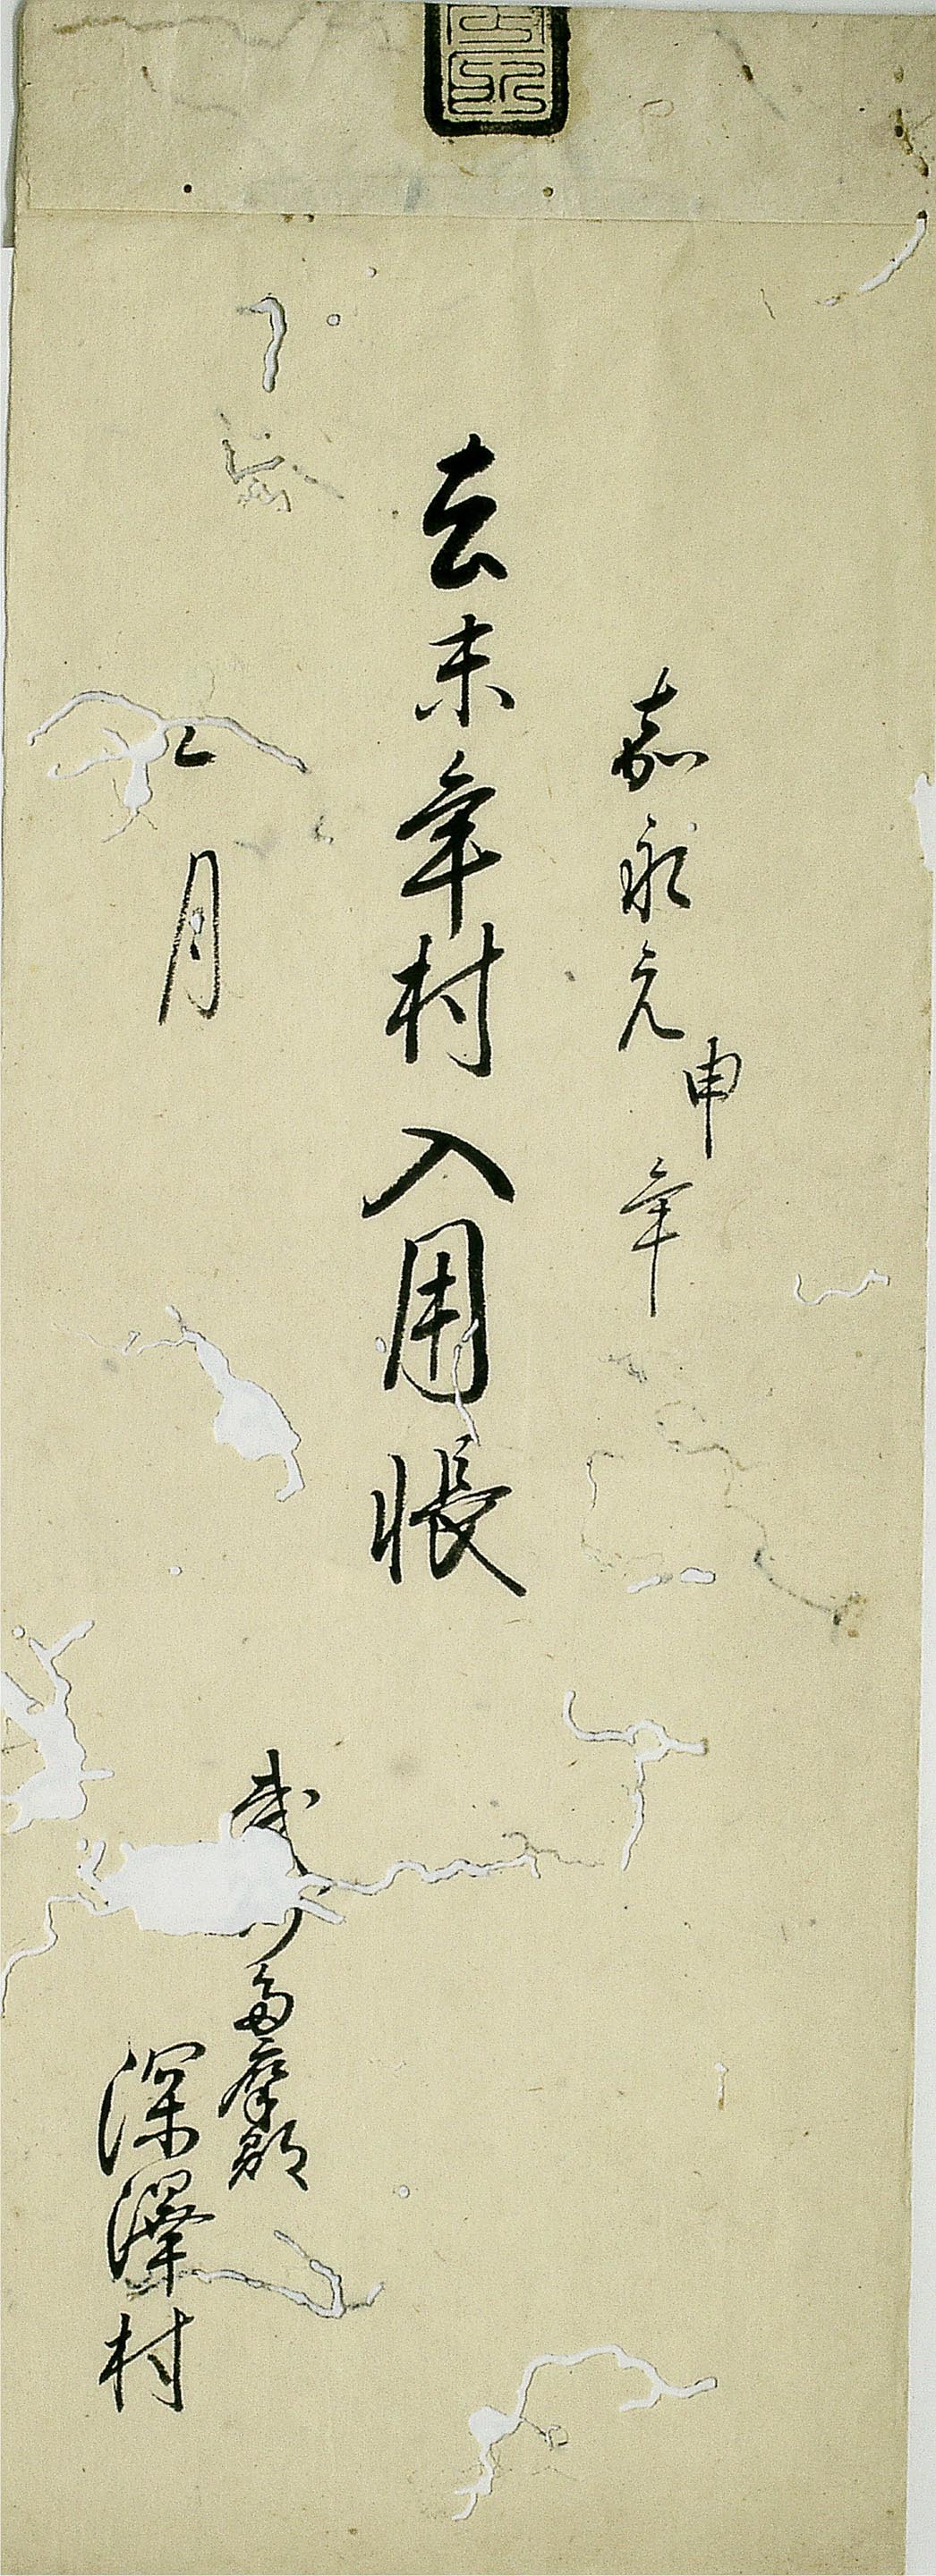 嘉永元申年
去未年村入用帳
月
武
多摩郡
深澤村